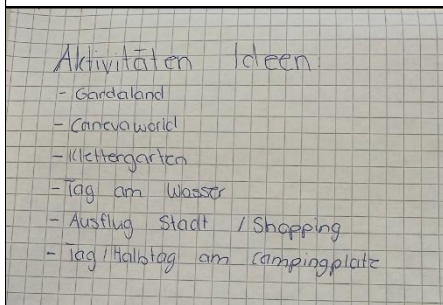 Aktivitäten Ideen:
- Gardaland
- Canevaworld
- Klettergarten
- Tag am Wasser
- Ausflug Stadt / Shopping
- Tag / Halbtag am Campingplatz